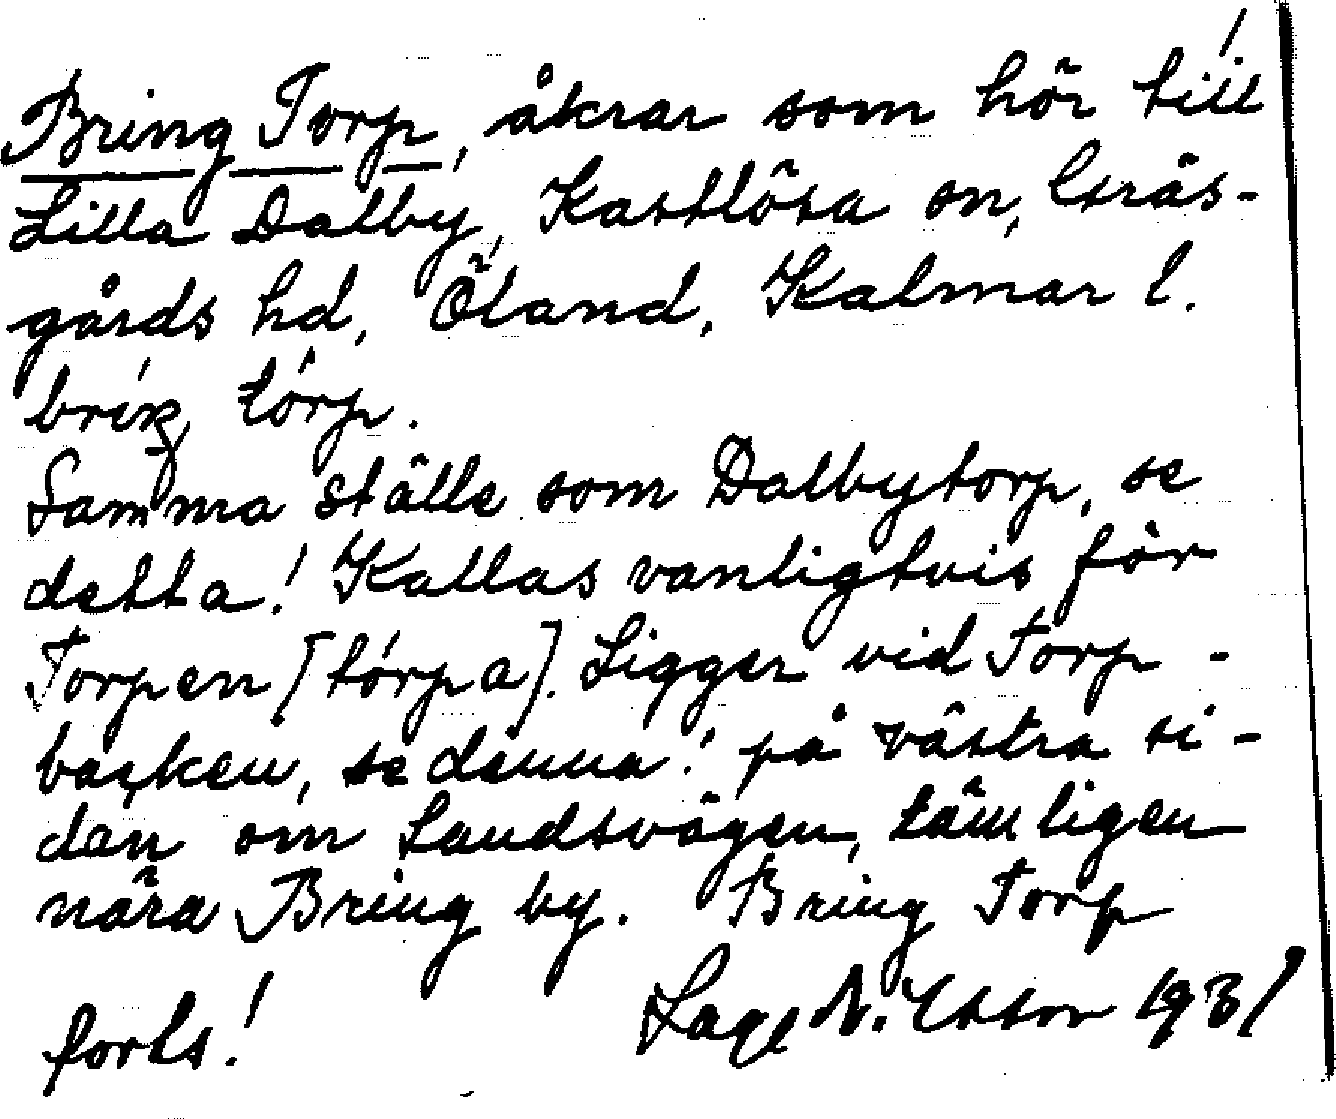 Bring Torp, åkrar som hör till
Lilla Dalby, Kastlösa sn, Gräs-
gårds hd, Öland, Kalmar l.
bríŋ tórp.
Samma ställe som Dalbytorp, se
detta! Kallas vanligtvis för
Torpen [tórpa]. Ligger vid Torp-
backen, se denna! på västra si-
dan om landsvägen, tämligen
nära Bring by. Bring Torp
forts! Lage Nilsson 1931